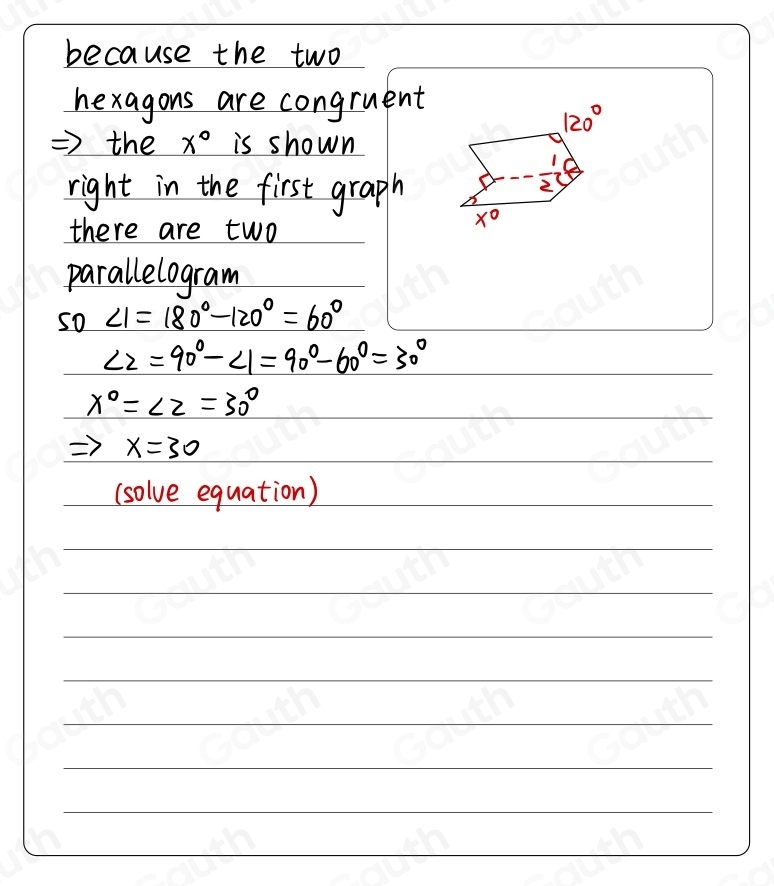 because the two
hexagons are congruent
=> the x° is shown
right in the first graph
there are two
parallelogram
so ∠1 = 180° - 120° = 60°
∠2 = 90° - ∠1 = 90° - 60° = 30°
x° = ∠2 = 30°
=> x = 30
(solve equation)
120°
1
2
x°
Gauth